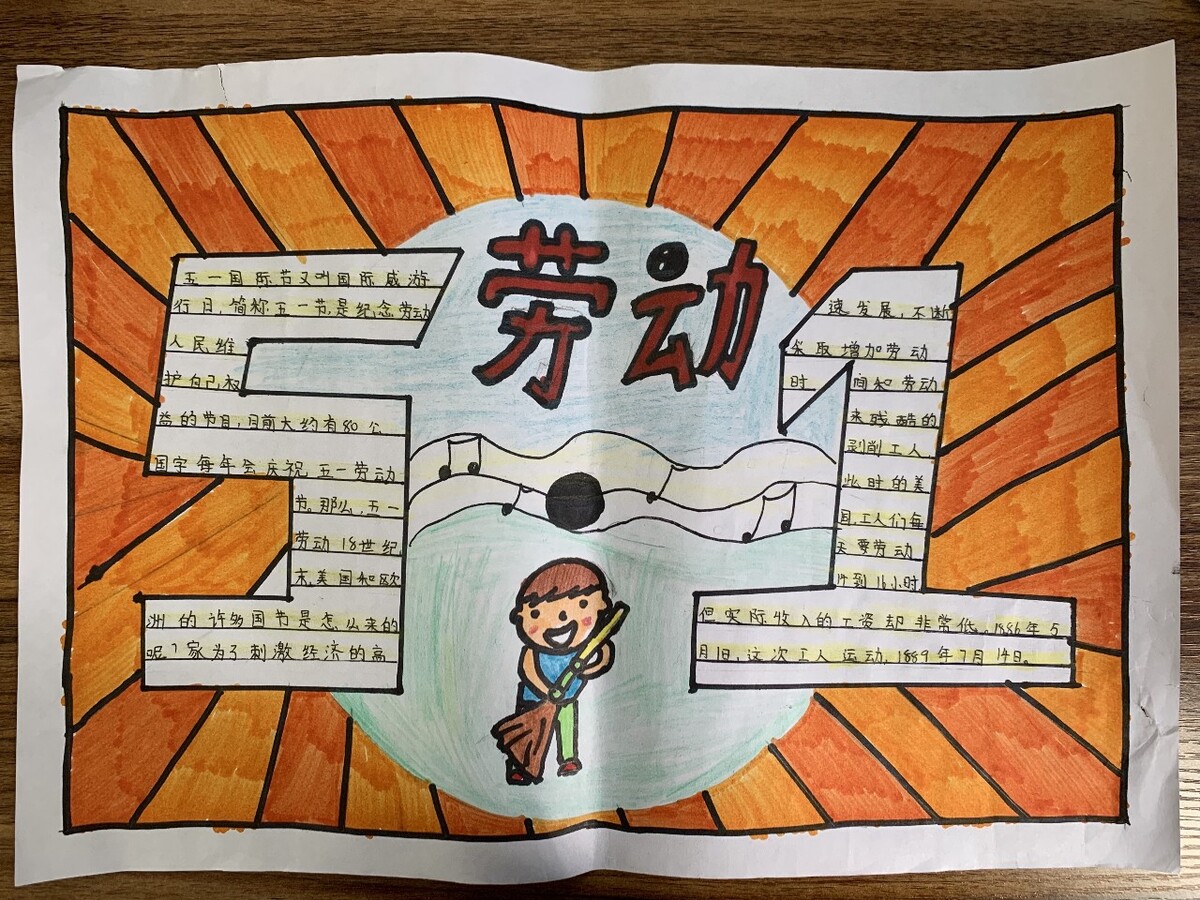 劳动
五一国际节又叫国际感游
行日,简称五一节,是纪念劳动
人民维
护自己权
益的节日,目前大约有80公
国字每年会庆祝五一劳动
节。那么,五一
劳动18世纪
末,美国和欧
洲的许多国节是怎么来的
呢?家为了刺激经济的高
速发展,不断
采取增加劳动
时 间和劳动
来残酷的
剥削工人
此时的美
国,工人们每
天要劳动
14到16小时
但实际收入的工资却非常低,1886年5
月1日,这次工人运动,1889年7月14日。